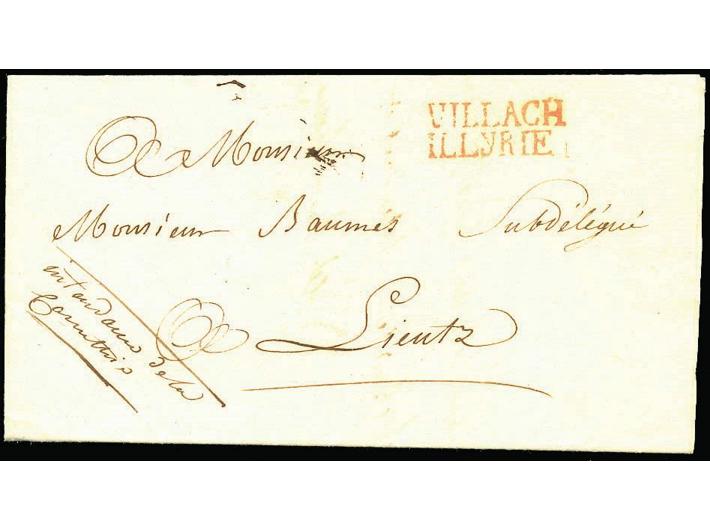 VILLACH
ILLYRIE
A Monsieur
Monsieur Baumés Subdélégué
A Lientz
intendance de la
Carinthie